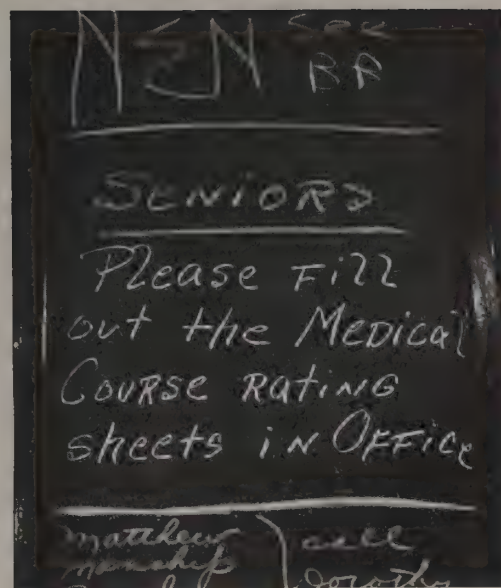 NEN
BA
SENIORS
Please Fill
out the Medical
Course Rating
sheets in Office
Matthew call
Dorothy